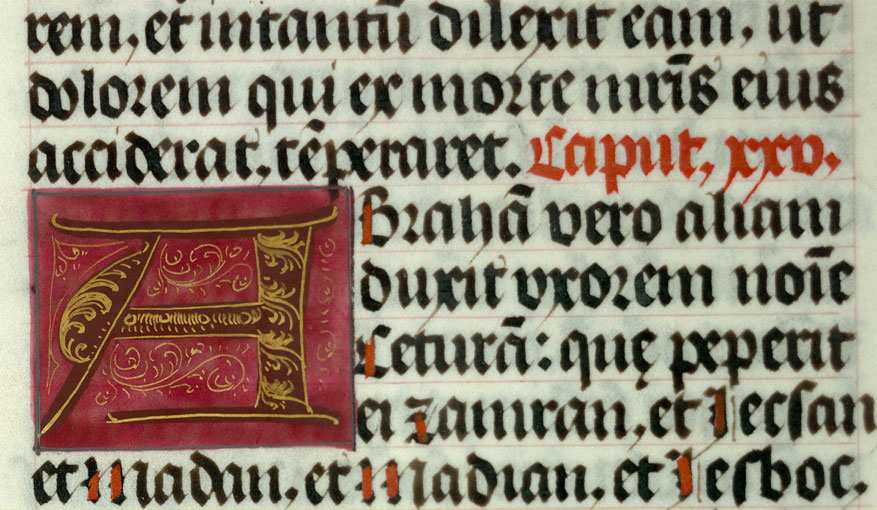 rem, et intantū dilexit eam, ut
dolorem qui ex morte mr̄is eius
acciderat, tēperaret. Caput, xxv.
ABrahā vero aliam
duxit vxorem noīe
Ceturā: quę peperit
ei Zamran, et Iecsan
et Madan, et Madian, et Iesboc.